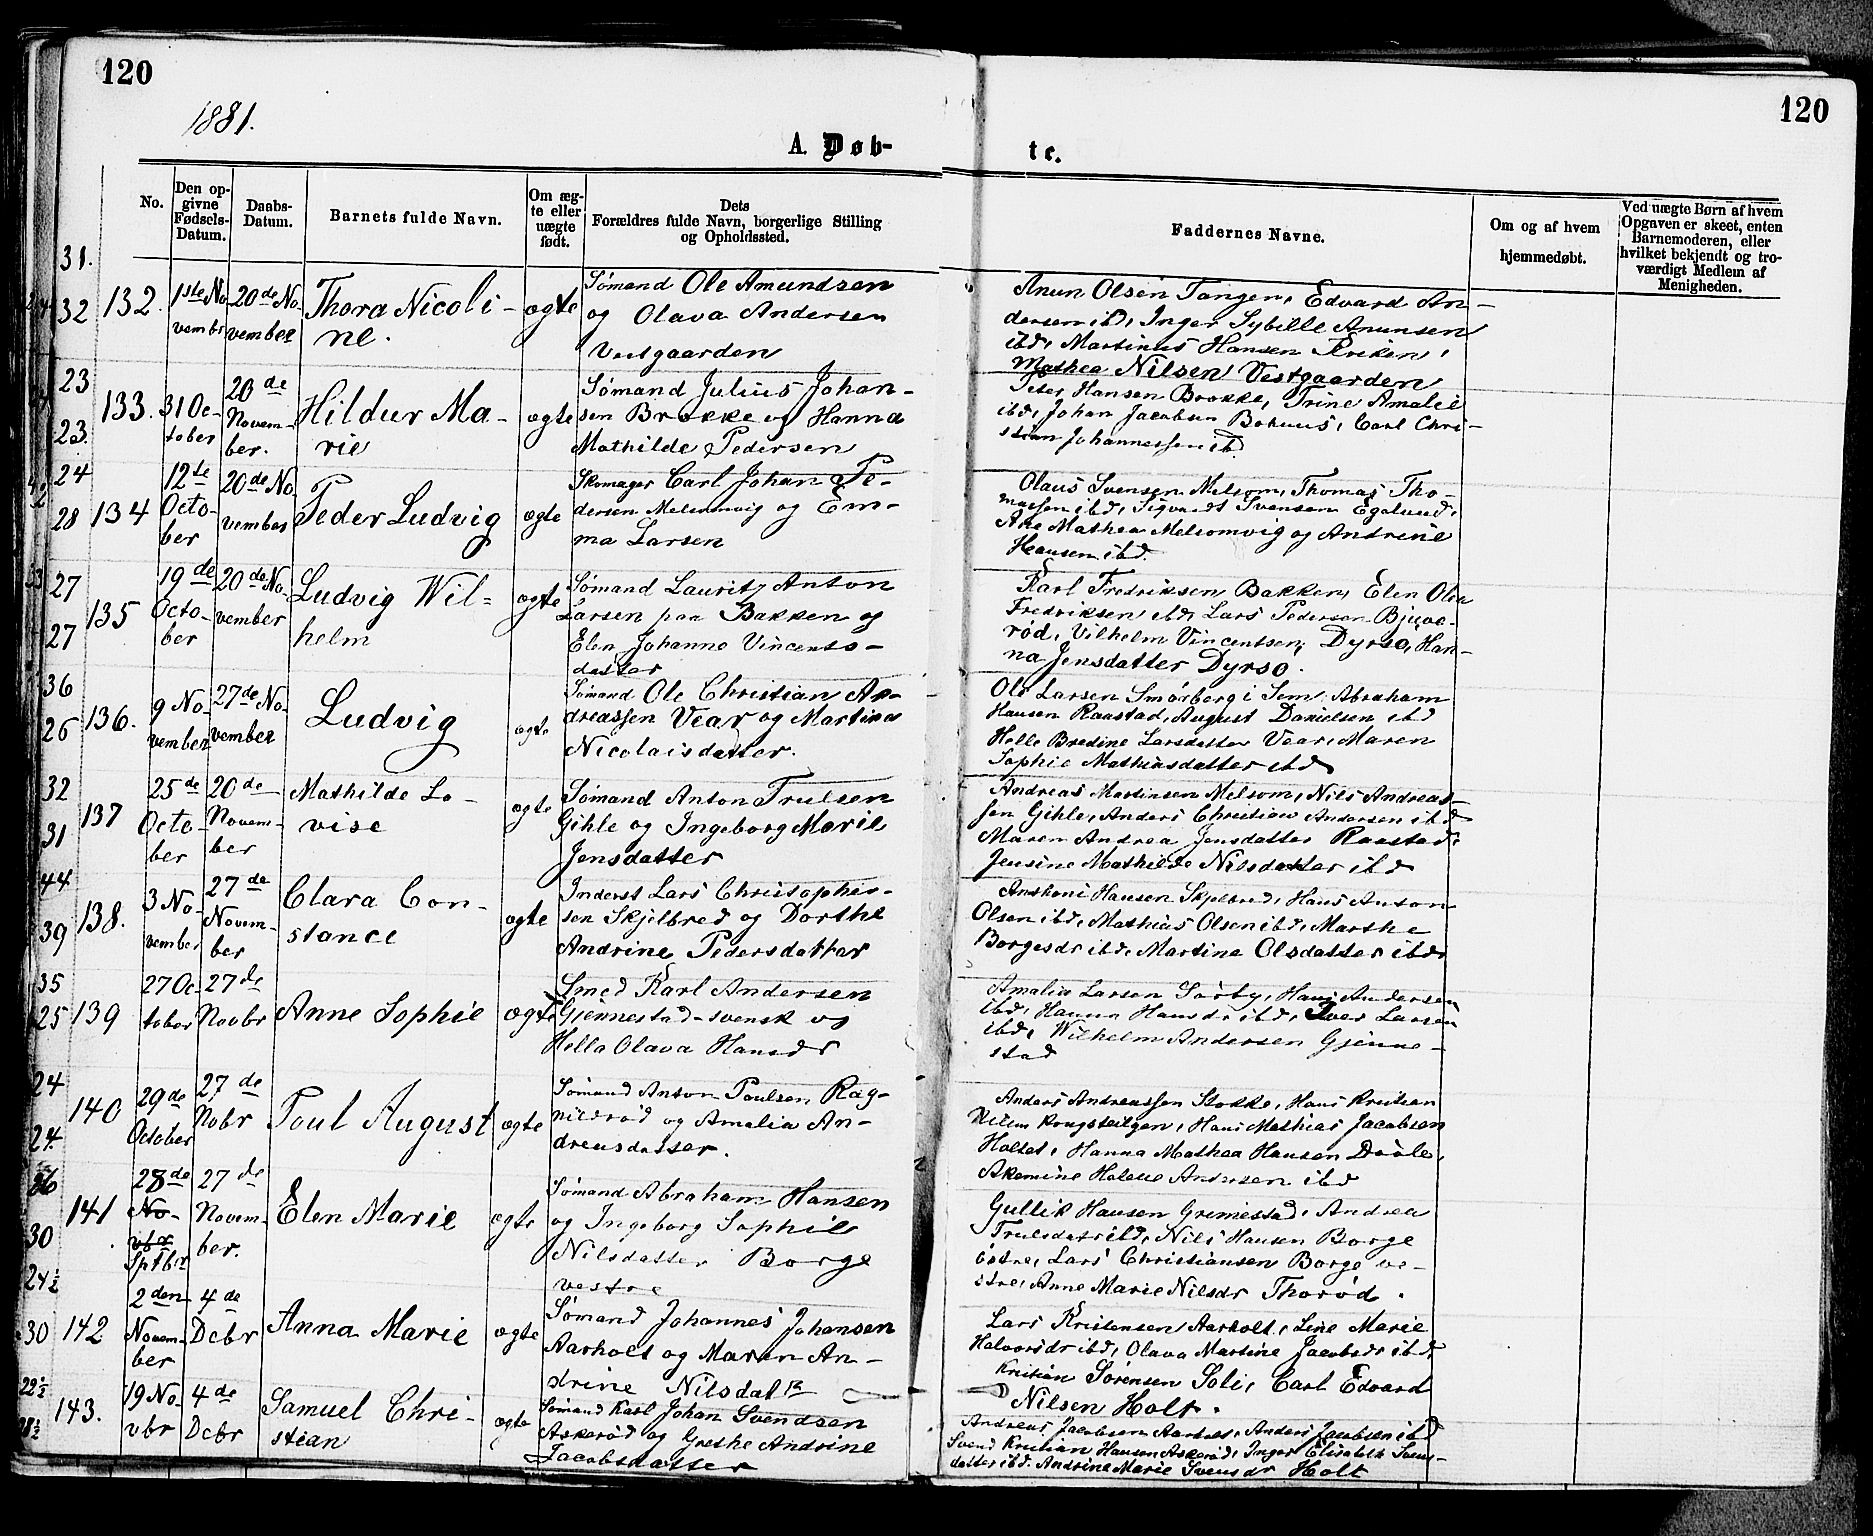 120
120
1881.
A. Døb-
te.
No.
Den op-
givne
Fødsels-
Datum.
Daabs-
Datum.
Barnets fulde Navn.
Om æg-
te eller
uægte
født.
Dets
Forældres fulde Navn, borgerlige Stilling
og Opholdssted.
Faddernes Navne.
Om og af hvem
hjemmedøbt.
Ved uægte Børn af hvem
Opgaven er skeet, enten
Barnemoderen, eller
hvilket bekjendt og tro-
værdigt Medlem af
Menigheden.
31.
32
132.
1ste No
vembr
20de No
vember
Thora Nicoli-
ne.
ægte
Sømand Ole Amundsen
og Olava Andersen
Vestgaarden
Anun Olsen Tangen, Edvard An-
dersen ibd, Inger Sybille Anunsen
ibd, Martinus Hansen
Mathea Nilsen Vestgaarden
23
23.
133.
31 Oc-
tober
20de
Novem-
ber.
Hildur Ma-
rie
ægte
Sømand Julius Johan-
sen Brække og Hanna
Mathilde Pedersen
Peter Hansen Brække, Trine Amalie
ibd, Johan Jacobsen Bohuus, Carl Chri-
stian Johannessen ibd.
24
28
134
12te
Octo-
ber
20de No
vember
Peder Ludvig
ægte
Skomager Carl Johan Pe-
dersen Melsomvig og Em-
ma Larsen
Olaus Svensen Melsom, Thomas Tho-
massen ibd, Sigvardt Svensen
Ane Mathea Melsomvig og Andrine
Hansen ibd.
27
27
135
19de
Octo-
ber
20de No-
vember
Ludvig Wil-
helm
ægte
Sømand Lauritz Anton
Larsen paa Bakken og
Elen Johanne Vincents-
datter
Karl Fredriksen Bakken, Elen Olea
Fredriksen ibd, Lars Pedersen Bjuve-
rød, Vilhelm Vincentsen, Dyrsø, Han-
na Jensdatter Dyrsø.
36
26
136.
9 No-
vember
27de No-
vember
Ludvig
ægte
Sømand Ole Christian An-
dreassen Vear og Martine
Nicolaisdatter.
Ole Larsen Smørberg i Sem. Abraham
Hansen Raastad, August Danielsen ibd
Helle Bredine Larsdatter Vear, Maren
Sophie Mathiasdatter ibd
32
31
137
25de
Octo-
ber
20de
Novem-
ber
Mathilde Lo-
vise
ægte
Sømand Anton Trulsen
Gihle og Ingeborg Marie
Jensdatter
Andreas Martinsen Melsom, Nils Andreas-
sen Gihle, Anders Christian Andersen ibd
Maren Andrea Jensdatter Raastad,
Jensine Mathilde Nilsdatter ibd
44
39
138.
3 No-
vember
27de
Novem-
ber
Clara Con-
stance
ægte
Inderst Lars Christopher-
sen Skjelbred og Dorthe
Andrine Pedersdatter
Anthoni Hansen Skjelbred, Hans Anton
Olsen ibd, Mathias Olsen ibd, Marthe
Borgesdr ibd, Martine Olsdatter ibd
35
25
139
27 Oc
tober
27de
Novbr
Anne Sophie
ægte
Smed Karl Andersen
Gjennestad-svensk og
Hella Olava Hansdr
Amalia Larsen Sørby, Hans Andersen
ibd, Hanna Hansdr ibd, Iver Larsen
ibd, Wilhelm Andersen Gjenne-
stad
24
24.
140
29de
October
27de
Nobr
Poul August
ægte
Sømand Anton Poulsen Rag-
nildrød og Amalia An-
dreasdatter.
Anders Andreassen Stokke, Hans Kristian
Hans Mathias Jacobsen
Holtet, Hanna Mathea Hansen Daale,
Akemine Helene Andersen ibd
30
141
28de
No-
vbr
Sptbr
27de
Novem-
ber.
Elen Marie
ægte
Sømand Abraham Hansen
og Ingeborg Sophie
Nilsdatter Borge
vestre
Gullik Hansen Grimestad, Andrea
Trulsdatr ibd, Nils Hansen Borge
østre, Lars Christiansen Borge ve-
stre, Anne Marie Nilsdr Thorød.
24½
30
142
2den
Novem-
ber
4de
Dcbr
Anna Marie
ægte
Sømand Johannes Johansen
Aarholt og Maren An-
drine Nilsdatr
Lars Kristensen Aarholt, Line Marie
Halvorsdr ibd, Olava Martine Jacobsdr ibd,
Kristian Sørensen Soli, Carl Edvard
Nilsen Holt.
22½
28½
143.
19 No-
vbr
4de
Dcbr
Samuel Chri-
stian
ægte
Sømand Karl Johan Svendsen
Askerød og Grethe Andrine
Jacobsdatter
Andreas Jacobsen Aarholt, Anders Jacobsen ibd
Svend Kristian Hansen Askerød, Inger Elisabeth Svens-
datter ibd. Andrine Marie Svensdr Holt